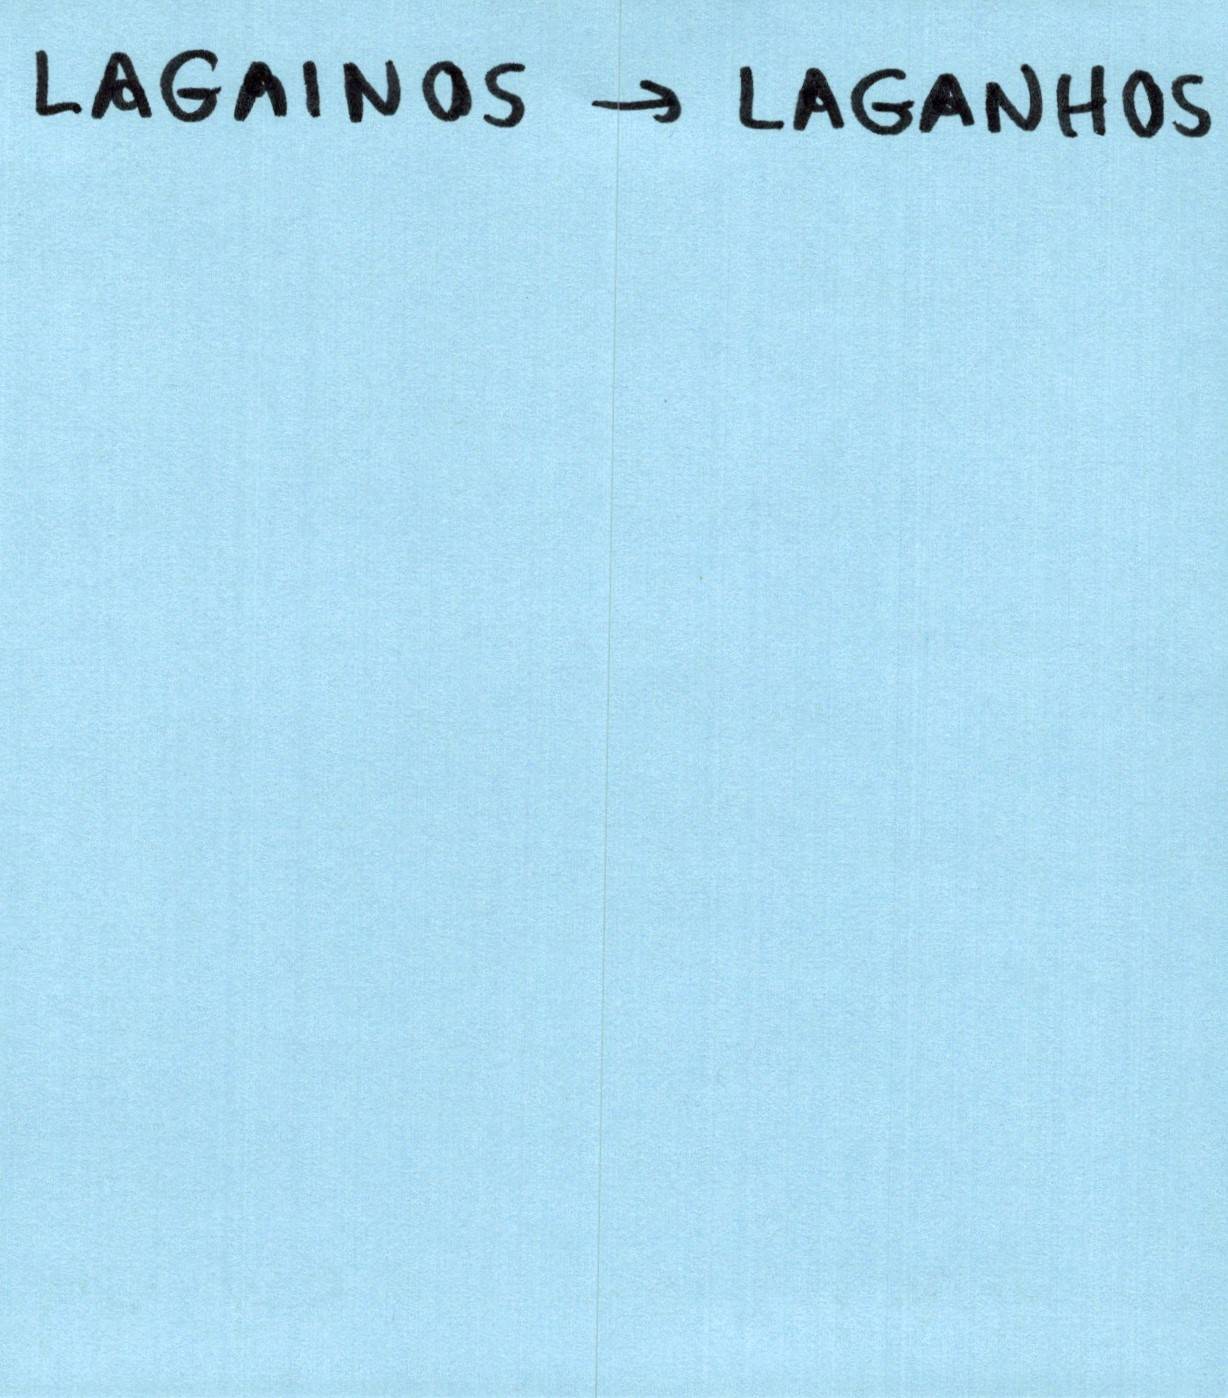 LAGAINOS → LAGANHOS